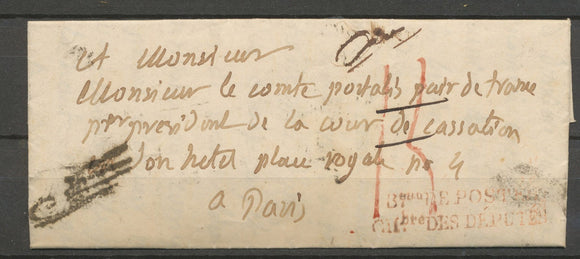 A Monsieur
Monsieur le comte portalis pair de france
p^ier president de la cour de cassation
son hotel place royale no 4
a Paris
B^eau DE POSTE
CH^bre DES DEPUTES